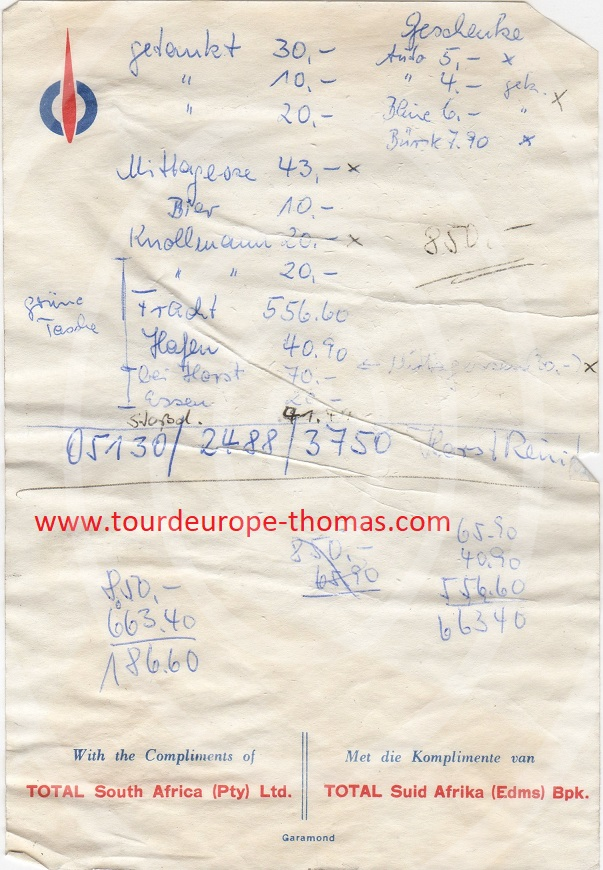 Geschenke
getankt 30,- Auto 5,- x
" 10,- " 4.- gek. x
" 20,- 6,- "
7.90 x
Mittagessen 43,- x
Bier 10.-
Knollmann 20.- x 850.-
" " 20,-
grüne
Tasche
Fracht 556.60
Hafen 40.90
bei Horst 70.- ← Mittagessen (30,-) x
Essen 20.-
05130/2488/3750 Horst
www.tourdeurope-thomas.com
850,-
65.90
65.90
40.90
556.60
66340
850,-
663.40
186.60
With the Compliments of
TOTAL South Africa (Pty) Ltd.
Met die Komplimente van
TOTAL Suid Afrika (Edms) Bpk.
Garamond